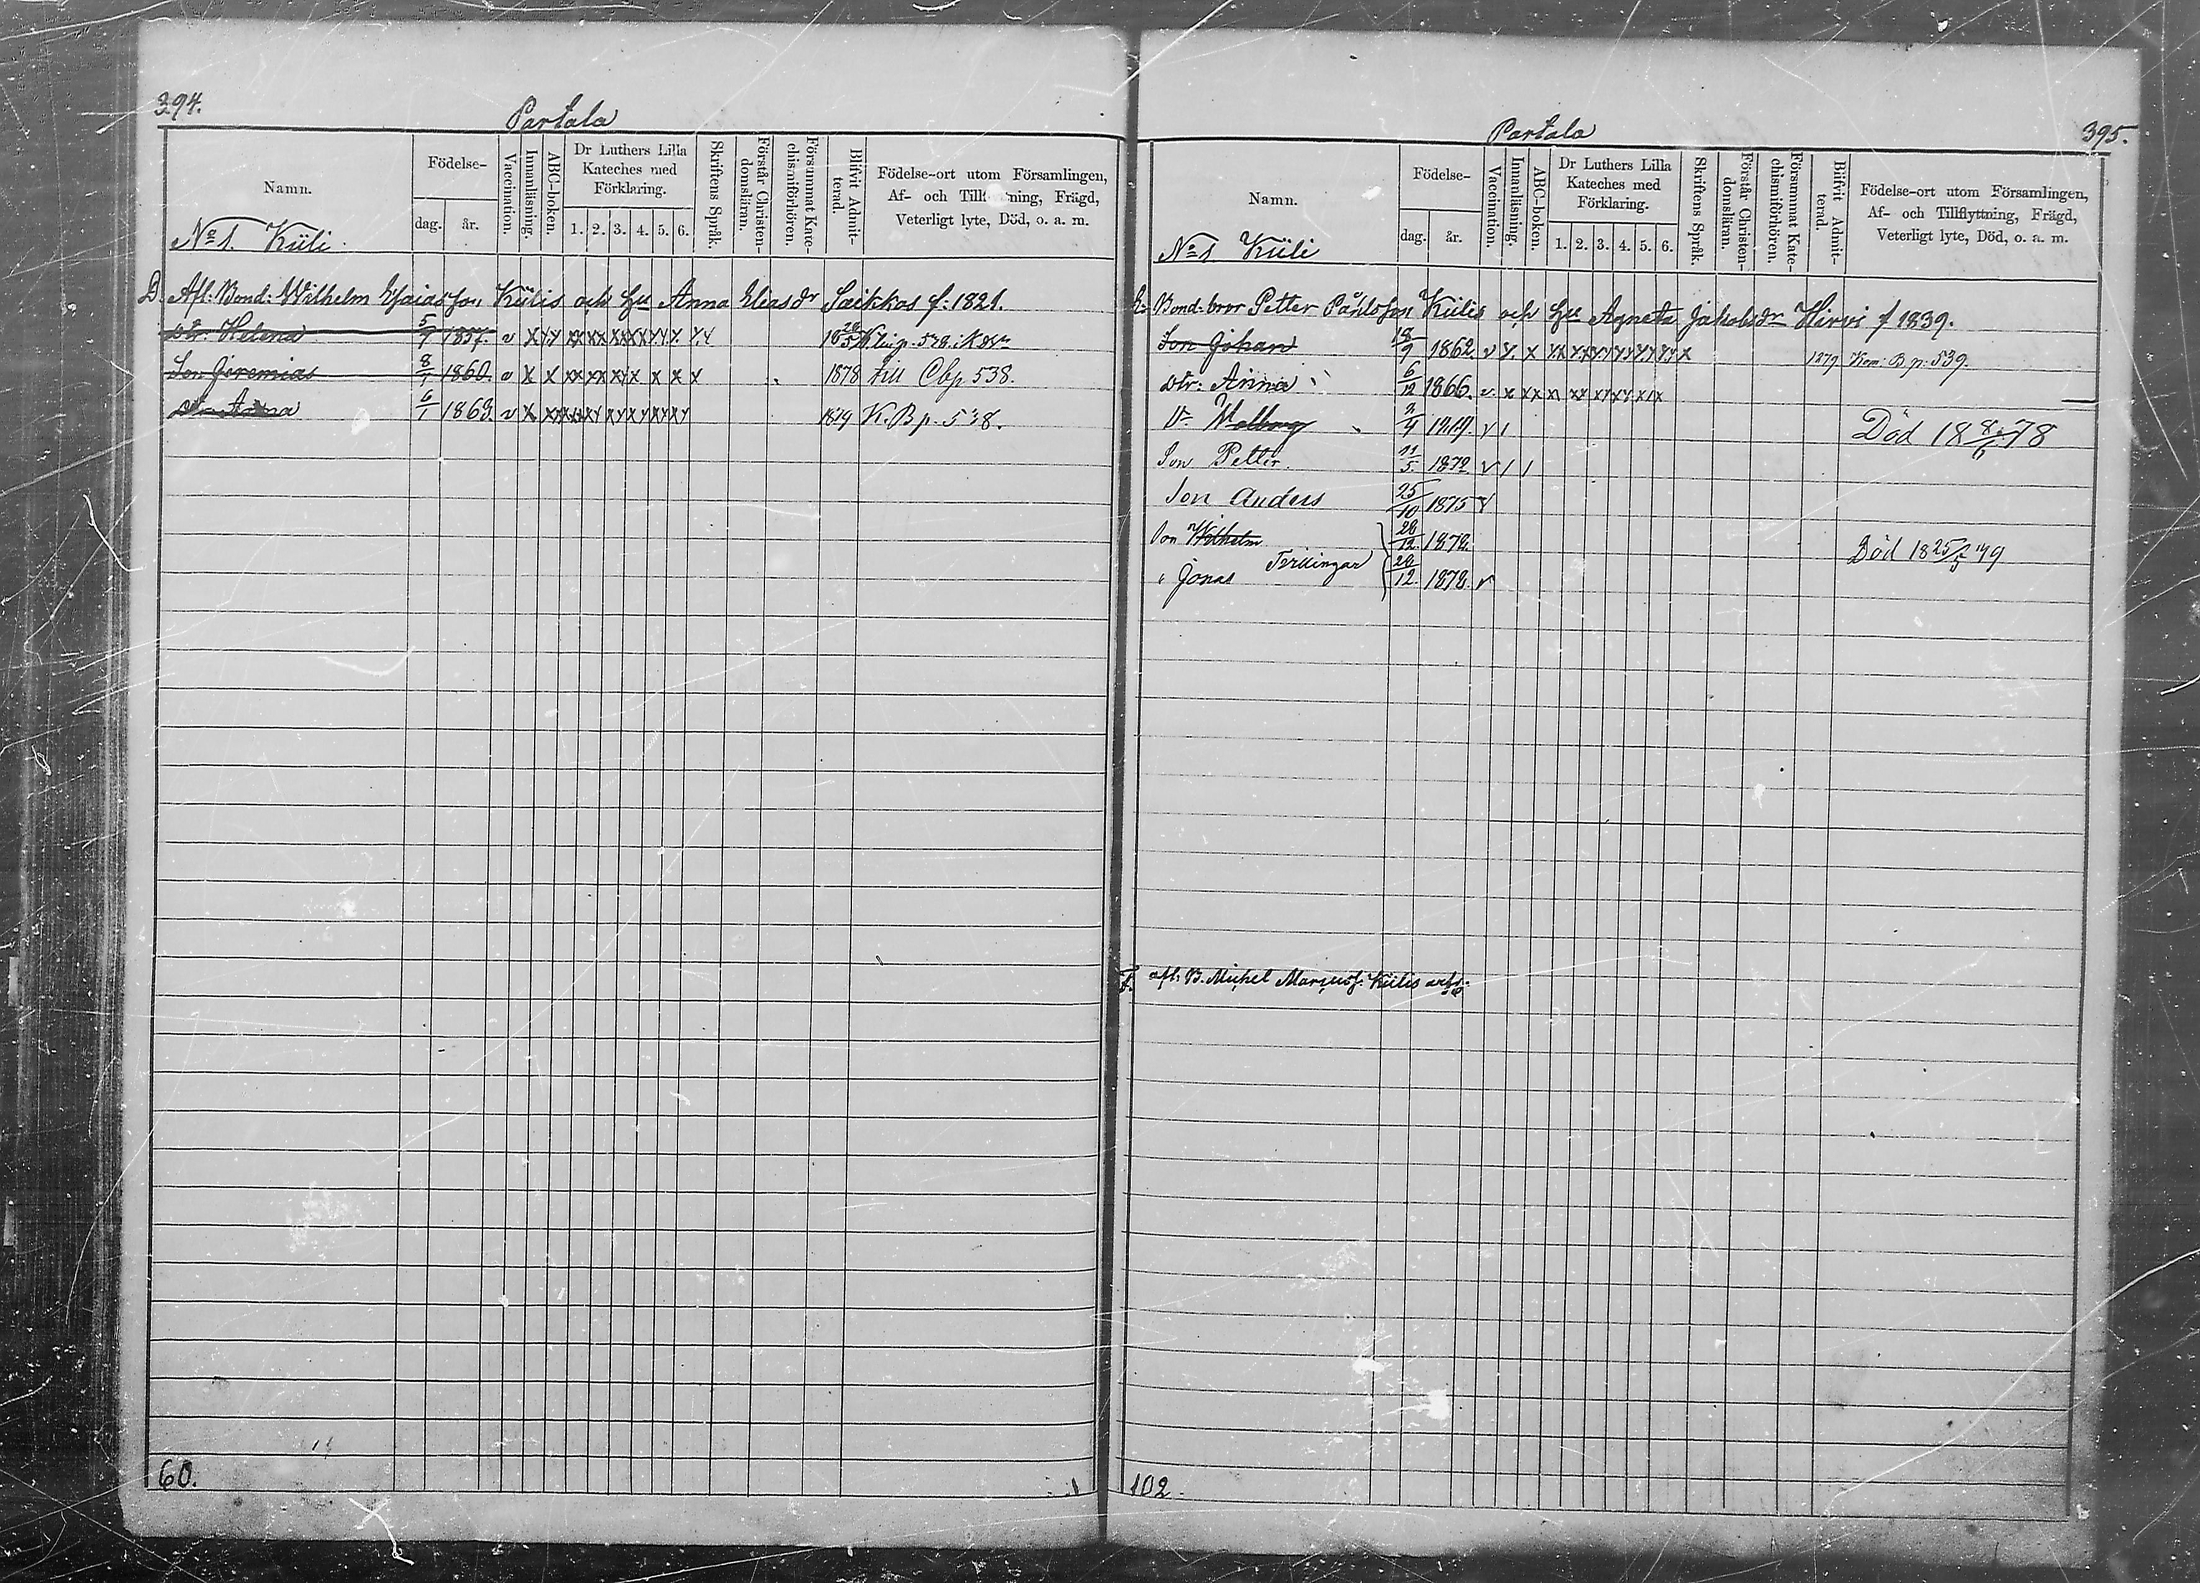 394.
Partala
Namn.
Födelse-
dag. år.
Vaccination.
Innanläsning.
ABC-boken.
Dr Luthers Lilla Kateches med Förklaring.
1. 2. 3. 4. 5. 6.
Skriftens Språk.
Förstår Christendomsläran.
Försummat Katechismiförhören.
Blifvit Admitterad.
Födelse-ort utom Församlingen,
Af- och Tillflyttning, Frägd,
Veterligt lyte, Död, o. a. m.
No 1. Kiili.
D. Afl: Bond: Wilhelm Esaiasson Kiilis och Hu Anna Eliasdr Saikkos f: 1821.
dtr. Helena 5/9 1857. v x
Son Jeremias 8/1 1860. v x x xx xx xx x x x x 1878 till Cbp 538.
dtr Anna 6/1 1863 v x 1879 K. B p. 538.
60.
Partala
395.
Namn.
Födelse-
dag. år.
Vaccination.
Innanläsning.
ABC-boken.
Dr Luthers Lilla Kateches med Förklaring.
1. 2. 3. 4. 5. 6.
Skriftens Språk.
Förstår Christendomsläran.
Försummat Katechismiförhören.
Blifvit Admitterad.
Födelse-ort utom Församlingen,
Af- och Tillflyttning, Frägd,
Veterligt lyte, Död, o. a. m.
No 1 Kiili
E: Bond: bror Petter Påhlsson Kiilis och Hu Agneta Jakobsdr Hirvi f 1839.
Son Johan 18/9 1862 v x x 1879 Kom. B. p. 539.
dtr: Anna 6/12 1866. v x xx
D. Walborg 2/4 v 1 Död 18 8/6 78
Son Petter 11/5 1872 v 1 1
Son Anders 25/10 1875 v
Son Wilhelm 28/12 1878
Tvillingar
" Jonas 28/12 1878. v
Död 18 25/5 79
F. afl. B. Michel Marcuss: Kiilis
102